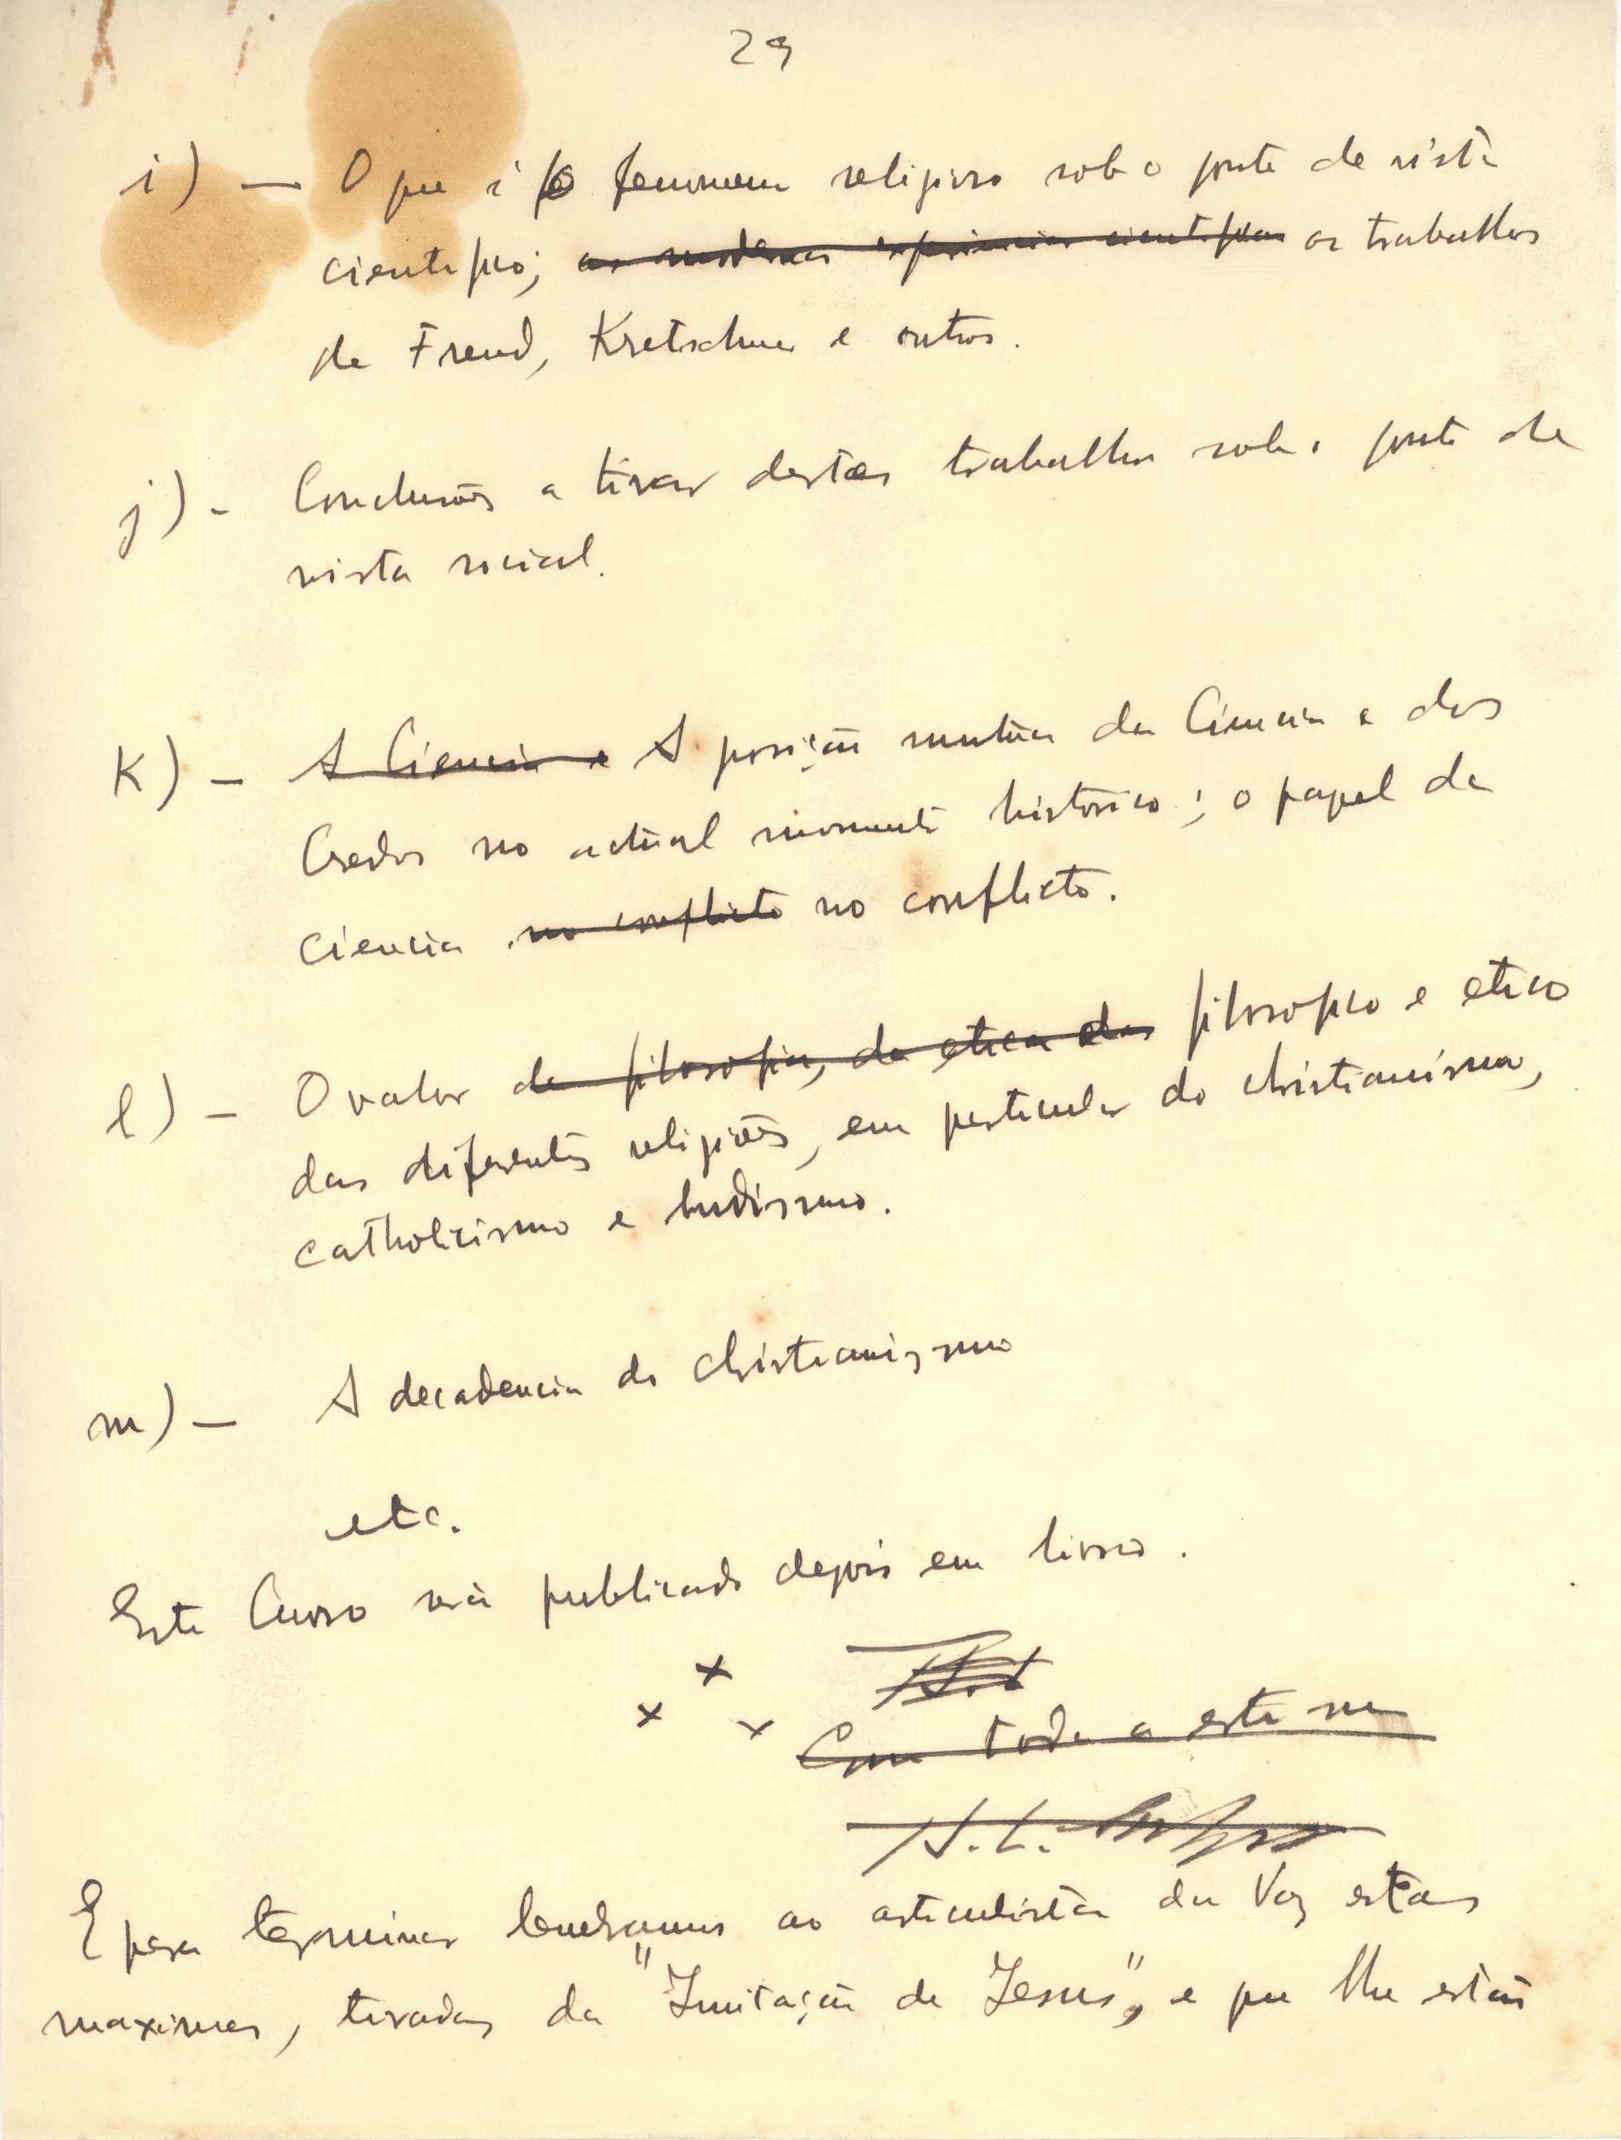 29
i) — O que é o fenomeno religioso sob o ponto de vista
cientifico; as modernas experiencias cientificas os trabalhos
de Freud, Kretschmer e outros.
j) - Conclusões a tirar destes trabalhos sob o ponto de
vista social.
K) — A Ciencia e A posição mutua da Ciencia e dos
Credos no actual momento historico; o papel da
ciencia no conflicto no conflicto.
l) — O valor da filosofia, da etica das filosofico e etico
das diferentes religiões, em particular do christianismo,
catholicismo e budismo.
m) — A decadencia do christianismo
etc.
Este Curso será publicado depois em livro.
x
x x
Com toda a esta
E para terminar lembramos ao articulista da Voz estas
maximas, tiradas da "Imitação de Jesus", e que lhe estão